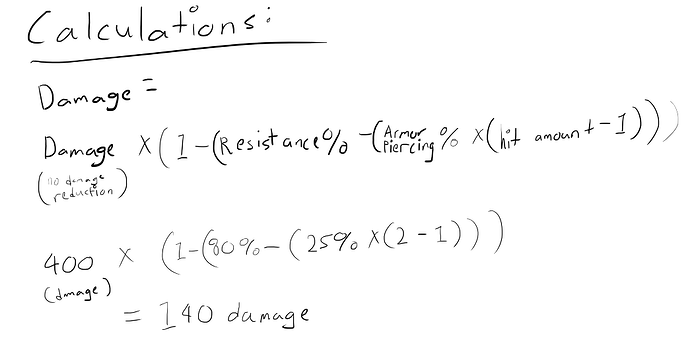 Calculations:
Damage =
Damage x (1-(Resistance% -(Armor Piercing% x(hit amount-1)))
(no damage reduction)
400 x (1-(90%-(25% x(2-1)))
(dmage)
= 140 damage